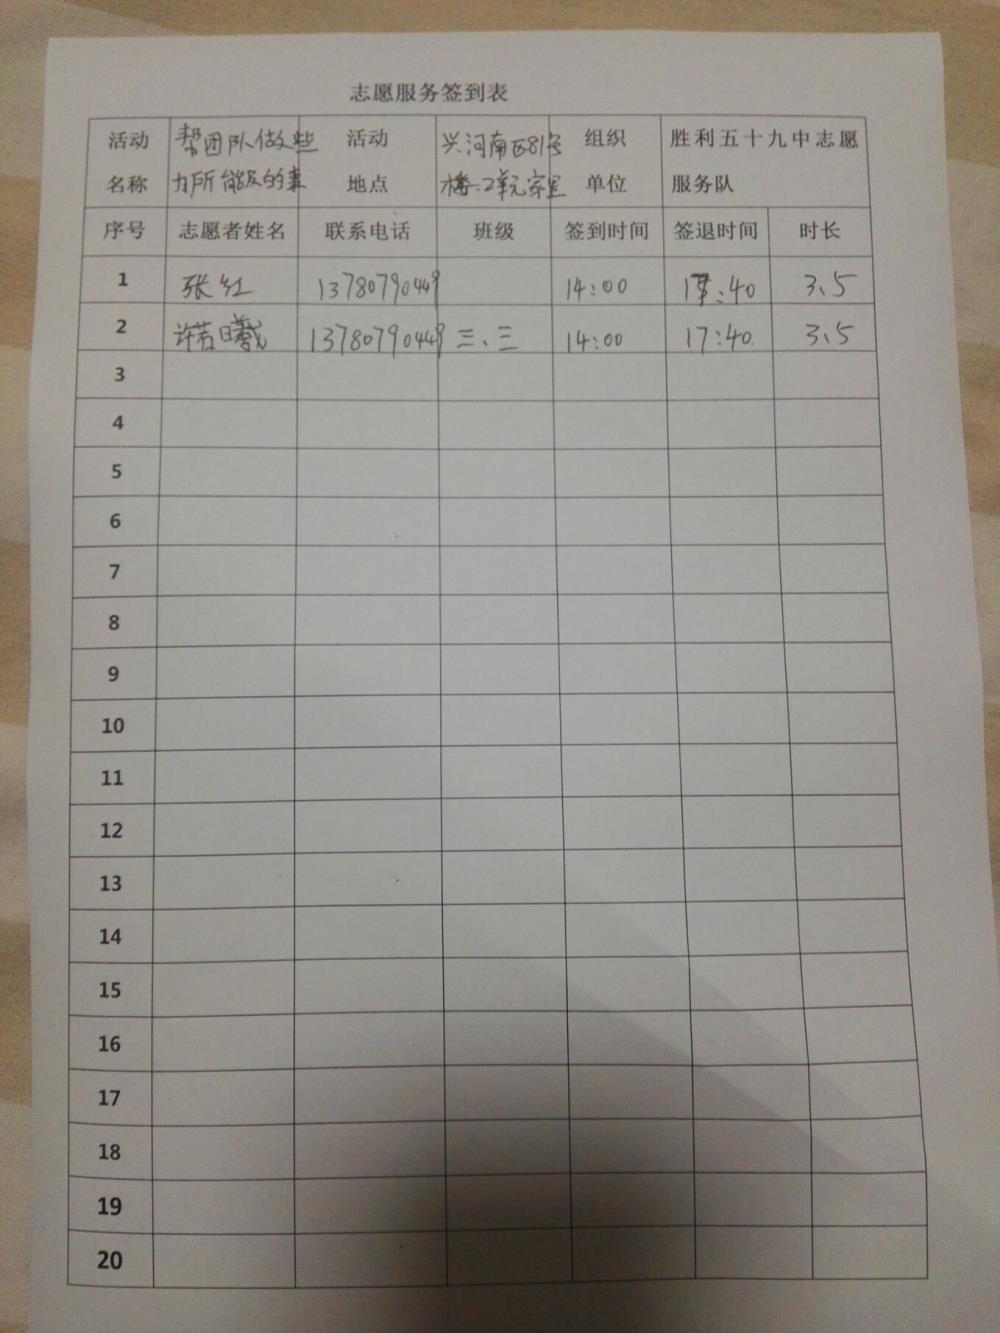 志愿服务签到表
活动 帮团队做些 活动 兴河南区81号 组织 胜利五十九中志愿
名称 力所能及的事 地点 楼2单元家里 单位 服务队
序号 志愿者姓名 联系电话 班级 签到时间 签退时间 时长
1 张红 13780790449 14:00 17:40 3、5
2 许若曦 13780790449 三、三 14:00 17:40 3、5
3
4
5
6
7
8
9
10
11
12
13
14
15
16
17
18
19
20